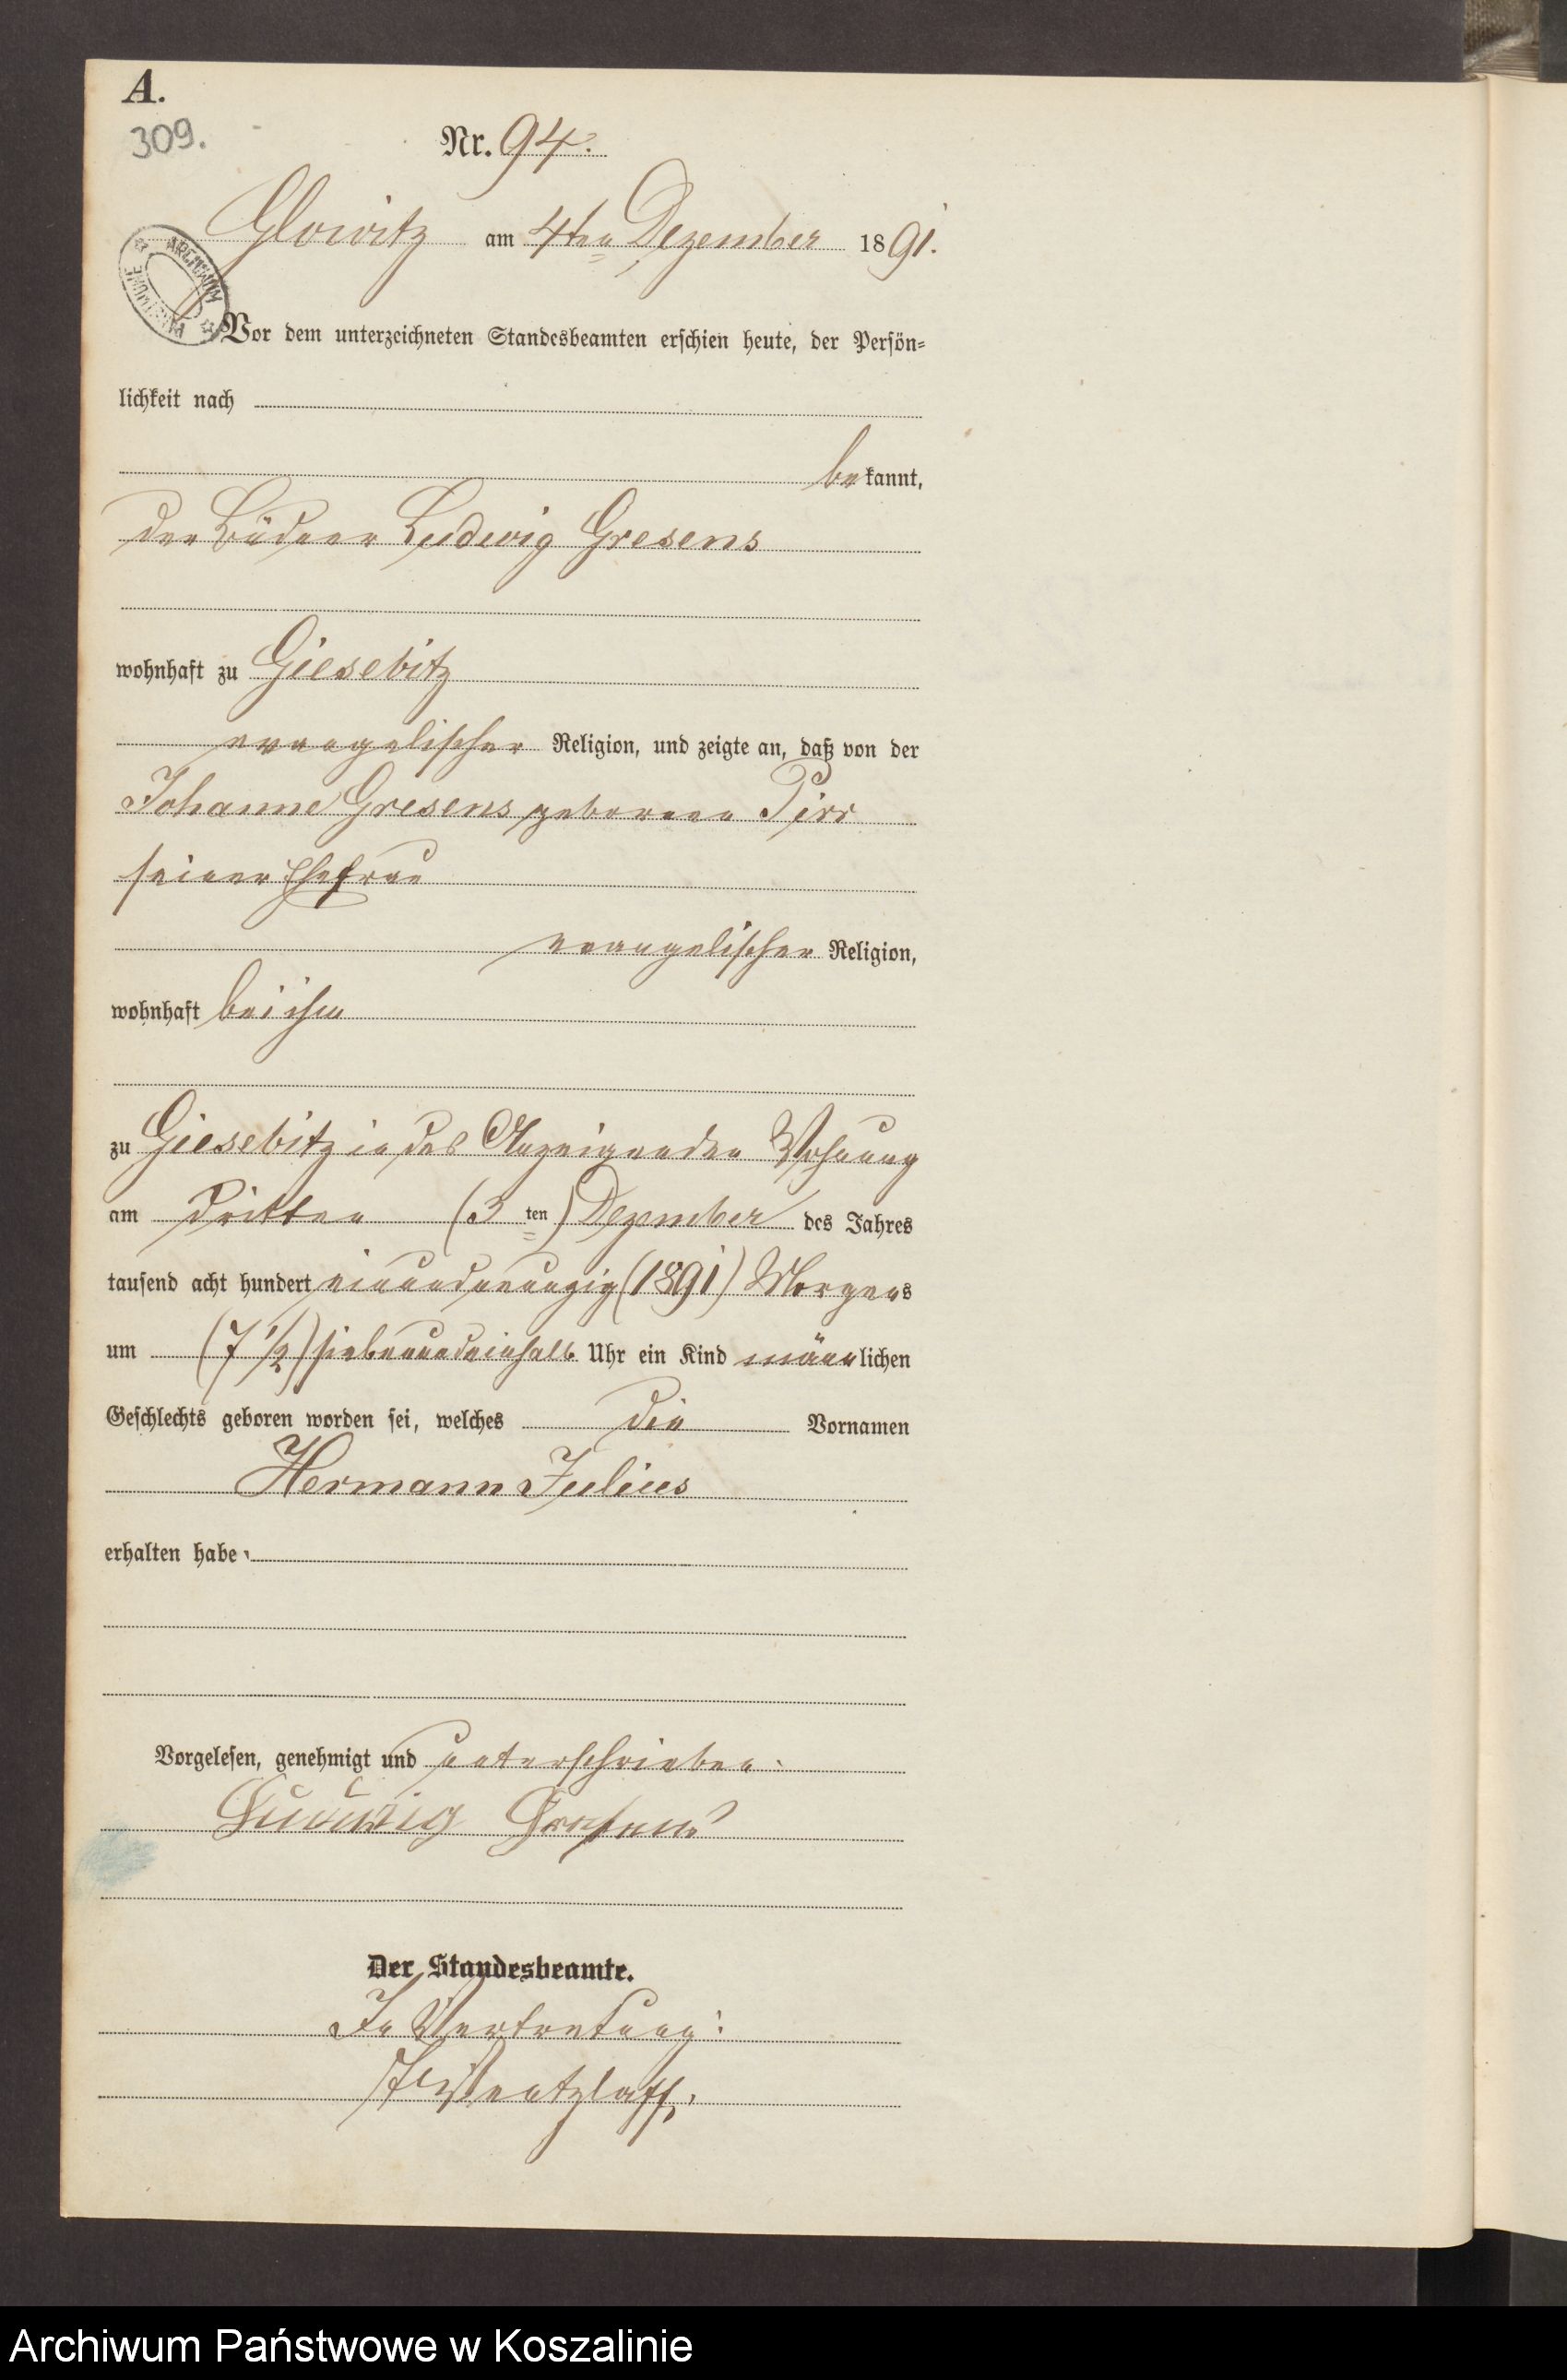 A.
309.
Nr. 94.
Glowitz am 4ten Dezember 1891.
ARCHIWUM PAŃSTWOWE
Vor dem unterzeichneten Standesbeamten erschien heute, der Persön-
lichkeit nach
bekannt,
der Büdner Ludwig Gresens
wohnhaft zu Giesebitz
evangelischer Religion, und zeigte an, daß von der
Johanne Gresens geborene Pirr
seiner Ehefrau
evangelischer Religion,
wohnhaft bei ihm
zu Giesebitz in des Anzeigenden Wohnung
am dritten (3 ten) Dezember des Jahres
tausend acht hundert einundneunzig (1891) Morgens
um (7 1/2) siebenundeinhalb Uhr ein Kind männlichen
Geschlechts geboren worden sei, welches die Vornamen
Hermann Julius
erhalten habe.
Vorgelesen, genehmigt und unterschrieben.
Ludwig Gresens
Der Standesbeamte.
In Vertretung:
Wentzlaff.
Archiwum Państwowe w Koszalinie